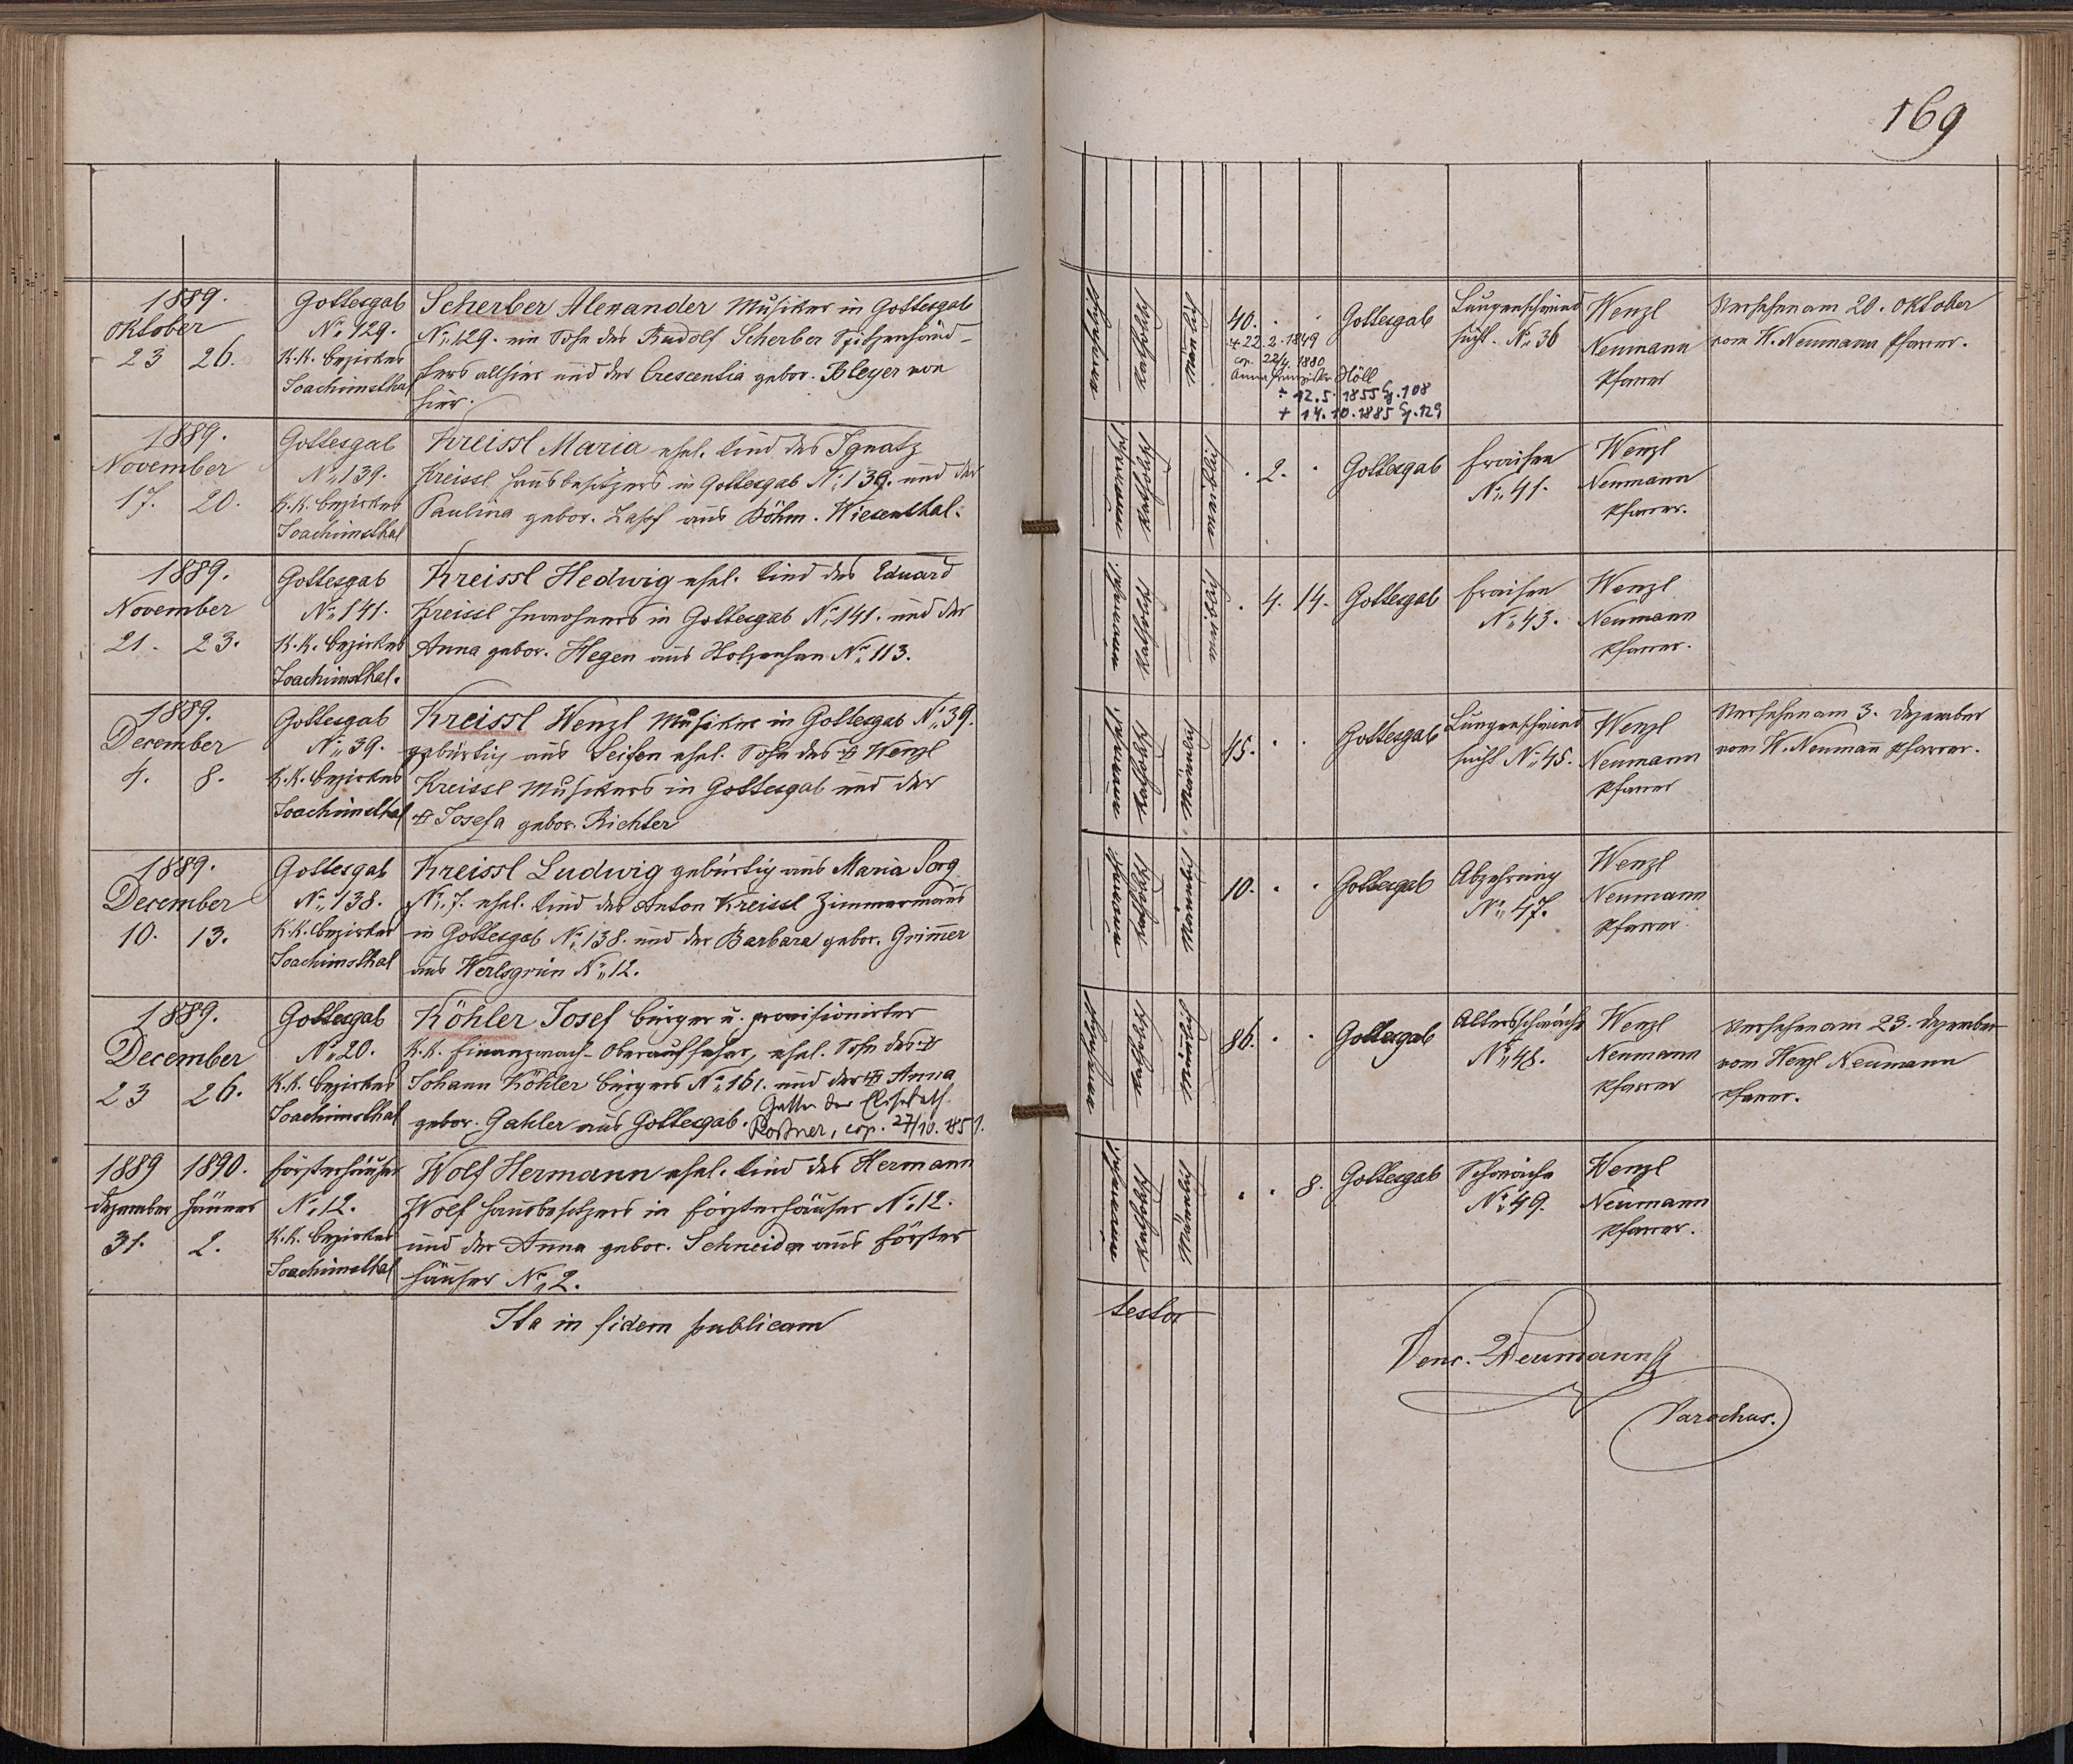 169
1889.
Oktober
23 26.
Gottesgab
No 129.
K.K. Bezirkes
Joachimsthal
Scherber Alexander Musiker in Gottesgab
No 129. ein Sohn des Rudolf Scherber Spitzenhänd-
lers allhier und der Crescentia gebor. Bleyer von
hier.
katholisch
männl
40. . .
* 22.2.1849
cop. 22/4. 1880
Anna Franziska Höll
* 12.5.1855 G.108
+ 14.10.1885 G.129
Gottesgab
Lungenschwind
sucht. No 36
Wenzl
Neumann
Pfarrer
Versehen am 20. Oktober
vom W. Neumann Pfarrer.
1889.
November
17. 20.
Gottesgab
No 139.
K.K. Bezirkes
Joachimsthal
Kreissl Maria ehel. Kind des Ignatz
Kreissl Hausbesitzers in Gottesgab No 139. und der
Paulina gebor. Zapf aus Böhm. Wiesenthal.
katholisch
. 2. .
Gottesgab
Fraisen
No 41.
Wenzl
Neumann
Pfarrer.
1889.
November
21. 23.
Gottesgab
No 141.
K.K. Bezirkes
Joachimsthal.
Kreissl Hedwig ehel. Kind des Eduard
Kreissl Inwohners in Gottesgab No 141. und der
Anna gebor. Hegen aus Holzenhan No 113.
katholisch
. 4. 14.
Gottesgab
Fraisen
No 43.
Wenzl
Neumann
Pfarrer.
1889.
December
4. 8.
Gottesgab
No 39.
K.K. Bezirkes
Joachimsthal
Kreissl Wenzl Musiker in Gottesgab No 39.
gebürtig aus Seifen ehel. Sohn des + Wenzl
Kreissl Musikers in Gottesgab und der
+ Josefa gebor. Richter
katholisch
Männlich
45. . .
Gottesgab
Lungenschwind
sucht No 45.
Wenzl
Neumann
Pfarrer
Versehen am 3. Dezember
vom W. Neumann Pfarrer.
1889.
December
10. 13.
Gottesgab
No 138.
K.K. Bezirkes
Joachimsthal
Kreissl Ludwig gebürtig aus Maria Sorg
No 7. ehel. Kind des Anton Kreissl Zimmermans
in Gottesgab No 138. und der Barbara gebor. Grimer
aus Werlsgrün No 12.
katholisch
Männlich
10. . .
Gottesgab
Abzehrung
No 47.
Wenzl
Neumann
Pfarrer
1889.
December
23 26.
Gottesgab
No 20.
K.K. Bezirkes
Joachimsthal
Köhler Josef Bürger u. provisionirter
K.K. Finanzwach-Oberaufseher, ehel. Sohn des +
Johann Köhler Bürgers No 161. und der + Anna
gebor. Gahler aus Gottesgab. Gatte der Elisabeth
Postner, cop. 27/10. 1851.
katholisch
männlich
86. . .
Gottesgab
Altersschwäche
No 48.
Wenzl
Neumann
Pfarrer
Versehen am 23. Dezember
vom Wenzl Neumann
Pfarrer.
1889 1890.
Dezember Jänner
31. 2.
Försterhäuser
No 12.
K.K. Bezirkes
Joachimsthal
Wolf Hermann ehel. Kind des Hermann
Wolf Hausbesitzers in Försterhäuser No 12.
und der Anna gebor. Schneider aus Förster
häuser No 2.
katholisch
Männlich
. . 8.
Gottesgab
Schwäche
No 49.
Wenzl
Neumann
Pfarrer.
Ita in fidem publicam
testor
Venc. Neumann
Parochus.